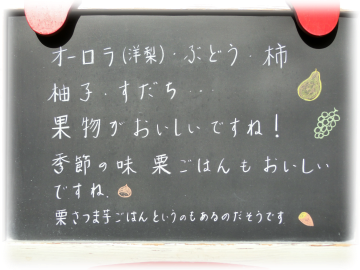 オーロラ(洋梨)・ぶどう・柿
柚子・すだち・・・
果物がおいしいですね!
季節の味 栗ごはんもおいしい
ですね.
栗さつま芋ごはんというのもあるのだそうです